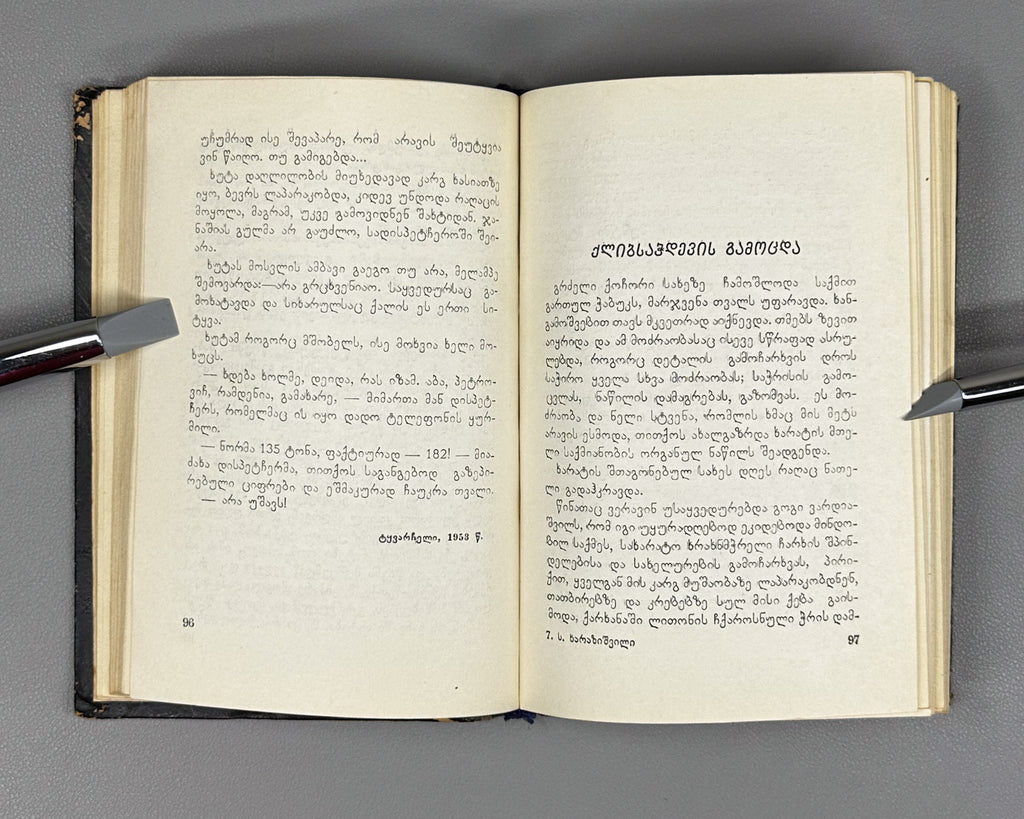 უჩუმრად ისე შევაპარე, რომ არავის შეუტყვია
ვინ წაიღო. თუ გამიგებდა...
ხუტა დაღლილობის მიუხედავად კარგ ხასიათზე
იყო, ბევრს ლაპარაკობდა, კიდევ უნდოდა რაღაცის
მოყოლა, მაგრამ, უკვე გამოვიდნენ შახტიდან. ჯა-
ნაშიას გულმა არ გაუძლო, სადისპეტჩეროში შეი-
არა.
ხუტას მოსვლის ამბავი გაეგო თუ არა, მელამპე
შემოვარდა:—არა გრცხვენიაო. საყვედურსაც გა-
მოხატავდა და სიხარულსაც ქალის ეს ერთი სი-
ტყვა.
ხუტამ როგორც მშობელს, ისე მოხვია ხელი მო-
ხუცს.
— ხდება ხოლმე, დეიდა, რას იზამ. აბა, პეტრო-
ვიჩ, რამდენია, გამახარე, — მიმართა მან დისპეტ-
ჩერს, რომელმაც ის იყო დადო ტელეფონის ყურ-
მილი.
— ნორმა 135 ტონა, ფაქტიურად — 182! — მია-
ძახა დისპეტჩერმა, თითქოს საგანგებოდ გაზეპი-
რებული ციფრები და ეშმაკურად ჩაუკრა თვალი.
— არა უშავს!
ტყვარჩელი, 1953 წ.
96
ქლიბსაჭდევის გამოცდა
გრძელი ქოჩორი სახეზე ჩამოშლოდა საქმით
გართულ ჭაბუკს, მარჯვენა თვალს უფარავდა. ხან-
გამოშვებით თავს მკვეთრად აიქნევდა. თმებს ზევით
აიყრიდა და ამ მოძრაობასაც ისევე სწრაფად ასრუ-
ლებდა, როგორც დეტალის გამოჩარხვის დროს
საჭირო ყველა სხვა მოძრაობას; საჭრისის გამო-
ცვლას, ნაწილის დამაგრებას, გაზომვას. ეს მო-
ძრაობა და ნელი სტვენა, რომლის ხმაც მის მეტს
არავის ესმოდა, თითქოს ახალგაზრდა ხარატის მთე-
ლი საქმიანობის ორგანულ ნაწილს შეადგენდა.
ხარატის შთაგონებულ სახეს დღეს რაღაც ნათე-
ლი გადაჰკრავდა.
წინათაც ვერავინ უსაყვედურებდა გოგი ვარდია-
შვილს, რომ იგი უყურადღებოდ ეკიდებოდა მინდო-
ბილ საქმეს, სახარატო ხრახნმჭრელი ჩარხის შპინ-
დელებისა და სახელურების გამოჩარხვას, პირი-
ქით, ყველგან მის კარგ მუშაობაზე ლაპარაკობდნენ,
თათბირებზე და კრებებზე სულ მისი ქება გაის-
მოდა, ქარხანაში ლითონის ჩქაროსნული ჭრის დამ-
7. ს. ხარაზიშვილი
97